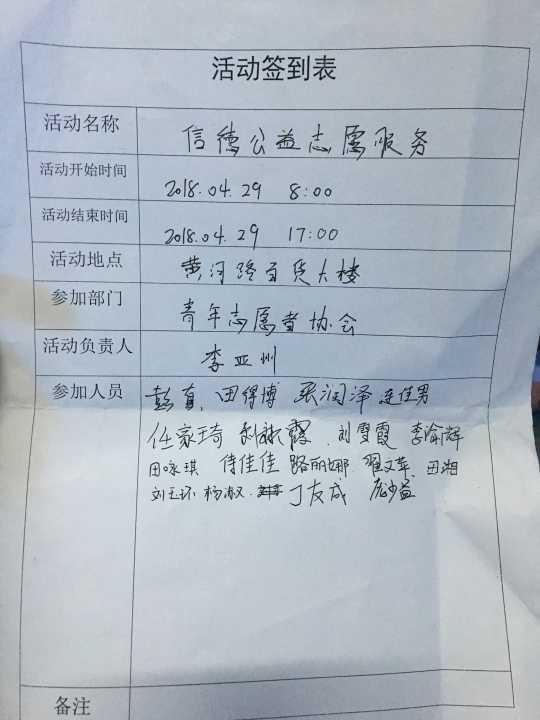 活动签到表
活动名称 信德公益志愿服务
活动开始时间 2018.04.29 8:00
活动结束时间 2018.04.29 17:00
活动地点 黄河路百货大楼
参加部门 青年志愿者协会
活动负责人 李亚州
参加人员 彭真 田得博 张润泽 连佳男
任家琦 刘 霞 刘雪霞 李渝辉
田咏琪 侍佳佳 路丽娜 翟文苹 田湘
刘玉环 杨淑 丁友成 庞少益
备注